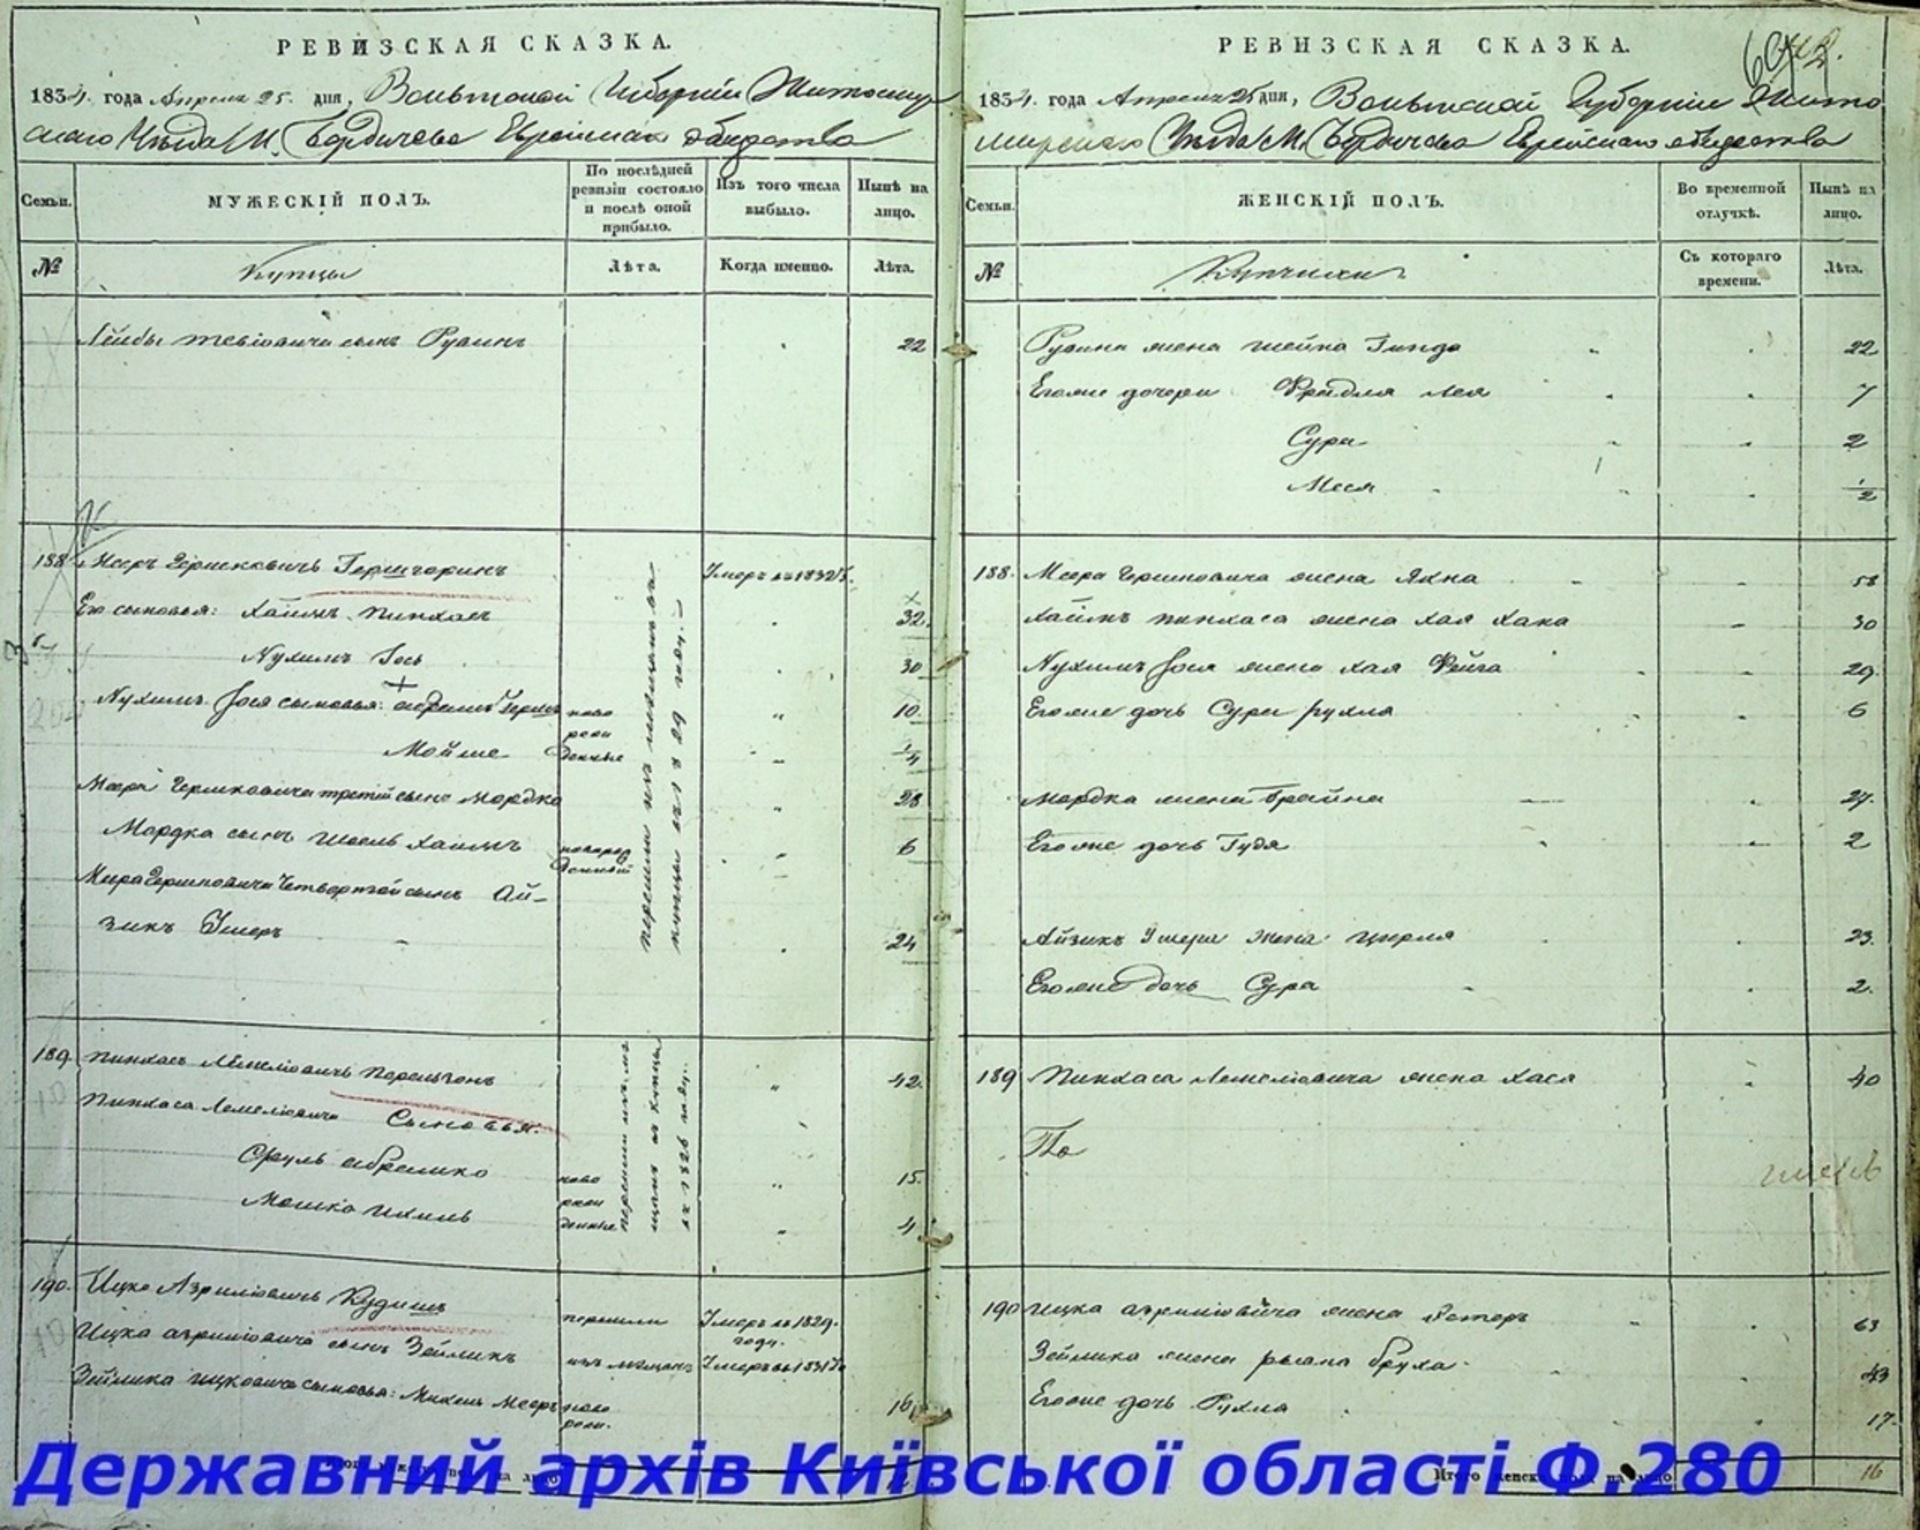 РЕВИЗСКАЯ СКАЗКА.
1834. года Апреля 25. дня, Волынской Губернии Житомир
скаго Уѣзда М. Бердичева Еврейскаго общества
Семьи.
МУЖЕСКІЙ ПОЛЪ.
По послѣдней ревизіи состояло и послѣ оной прибыло.
Изъ того числа выбыло.
Нынѣ на лицо.
№
Купцы
Лѣта.
Когда именно.
Лѣта.
Лейбы Тевіовича сынъ Рувинъ 22
188. Мееръ Гершковичъ Гершгоринъ Умеръ въ 1832 г.
Его сыновья: Хаимъ Пинхасъ 32.
Нухимъ Іось 30
Нухимъ Іося сыновья: Абрамъ Герш ново 10.
рож
Мойше денные 4
Меера Гершковича третій сынъ Мордко 28
Мордка сынъ Шоель Хаимъ новорож 6
денный
Меера Гершковича Четвертой сынъ Ай-
зикъ Умеръ 24
перешли изъ мещанъ въ
купцы въ 1829 году.
189. Пинхасъ Лемеліовичъ Перельгонъ 42.
Пинхаса Лемеліовича Сыновья:
Сруль Абрамко ново 15.
рож
Мошко Ихиль денные 4
перешли изъ ме
щанъ въ купцы
въ 1826 году.
190. Ицко Азриліовичъ Кудишъ перешли Умеръ въ 1829.
году.
Ицка Азриліовича сынъ Зейликъ изъ мещанъ Умеръ въ 1831 го
Зейлика Ицковича сыновья: Михель Мееръ ново 16
рож.
РЕВИЗСКАЯ СКАЗКА.
1834. года Апреля 25 дня, Волынской Губерніи Жито
мирскаго Уѣзда М. Бердичева Еврейскаго общества
Семьи.
ЖЕНСКІЙ ПОЛЪ.
Во временной отлучкѣ.
Нынѣ на лицо.
№
Купчихи
Съ котораго времени.
Лѣта.
Рувина жена Шейна Гинда 22
Егоже дочери Фрейдля Лея 7
Сура 2
Меся 1/2
188. Меера Гершковича жена Яхна 58
Хаимъ Пинхаса жена Хая Хана 30
Нухимъ Іося жена Хая Фейга 29.
Егоже дочь Сура Рухля 6
Мордка жена Брайна 27.
Егоже дочь Гудя 2
Айзикъ Умера жена Цирля 23.
Егоже дочь Сура 2.
189 Пинхаса Лемеліовича жена Хася 40
По
190 Ицка Азриліовича жена Естеръ 63
Зейлика жена Рызна Бруха 43
Егоже дочь Рухля 17.
Итого женска пола на лицо 16
Державний архів Київської області Ф.280